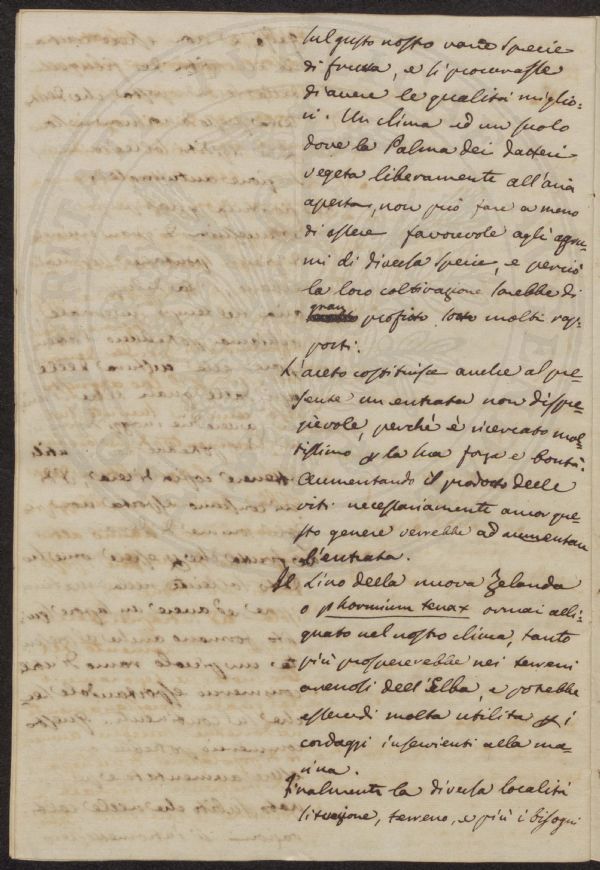 sul gusto nostro varie specie
di frutta, e si procurasse
di avere le qualità miglio-
ri. Un clima ed un suolo
dove la Palma dei datteri
vegeta liberamente all'aria
aperta, non può fare a meno
di essere favorevole agli agru-
mi di diversa specie, e perciò
la loro coltivazione sarebbe di
gran profitto sotto molti rap-
porti.
L'aceto costituisce anche al pre-
sente un entrata non dispre-
gievole, perchè è ricercato mol-
tissimo p la sua forza e bontà.
Aumentando il prodotto delle
viti necessariamente ancor que-
sto genere verrebbe ad aumentare
l'entrata.
Il Lino della nuova Zelanda
o phormium tenax ormai alli-
gnato nel nostro clima, tanto
più prospererebbe nei terreni
arenosi dell'Elba, e potrebbe
essere di molta utilità p i
cordaggi inservienti alla ma-
rina.
Finalmente la diversa località
situazione, terreno, e più i bisogni